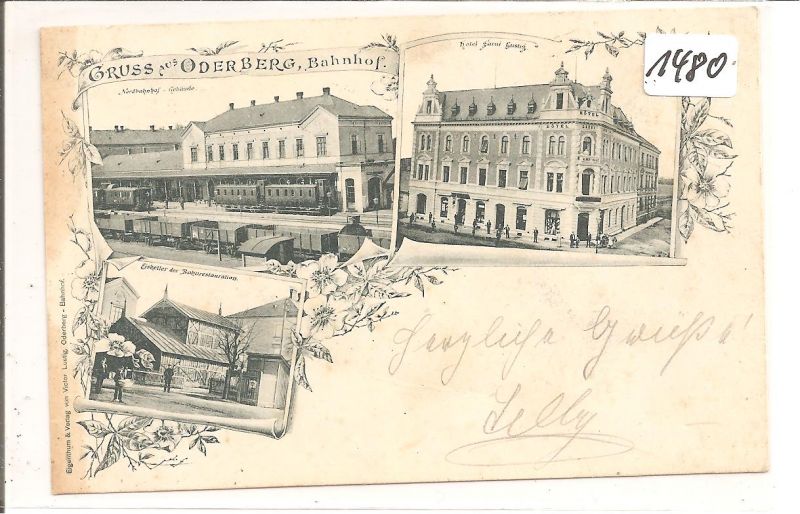 GRUSS AUS ODERBERG, Bahnhof.
Nordbahnhof - Gebäude.
Hotel garni Lustig.
1480
HOTEL
HOTEL
Eiskeller der Bahnrestauration.
Herzliche Grüße!
Eigenthum & Verlag von Victor Lustig, Oderberg - Bahnhof.